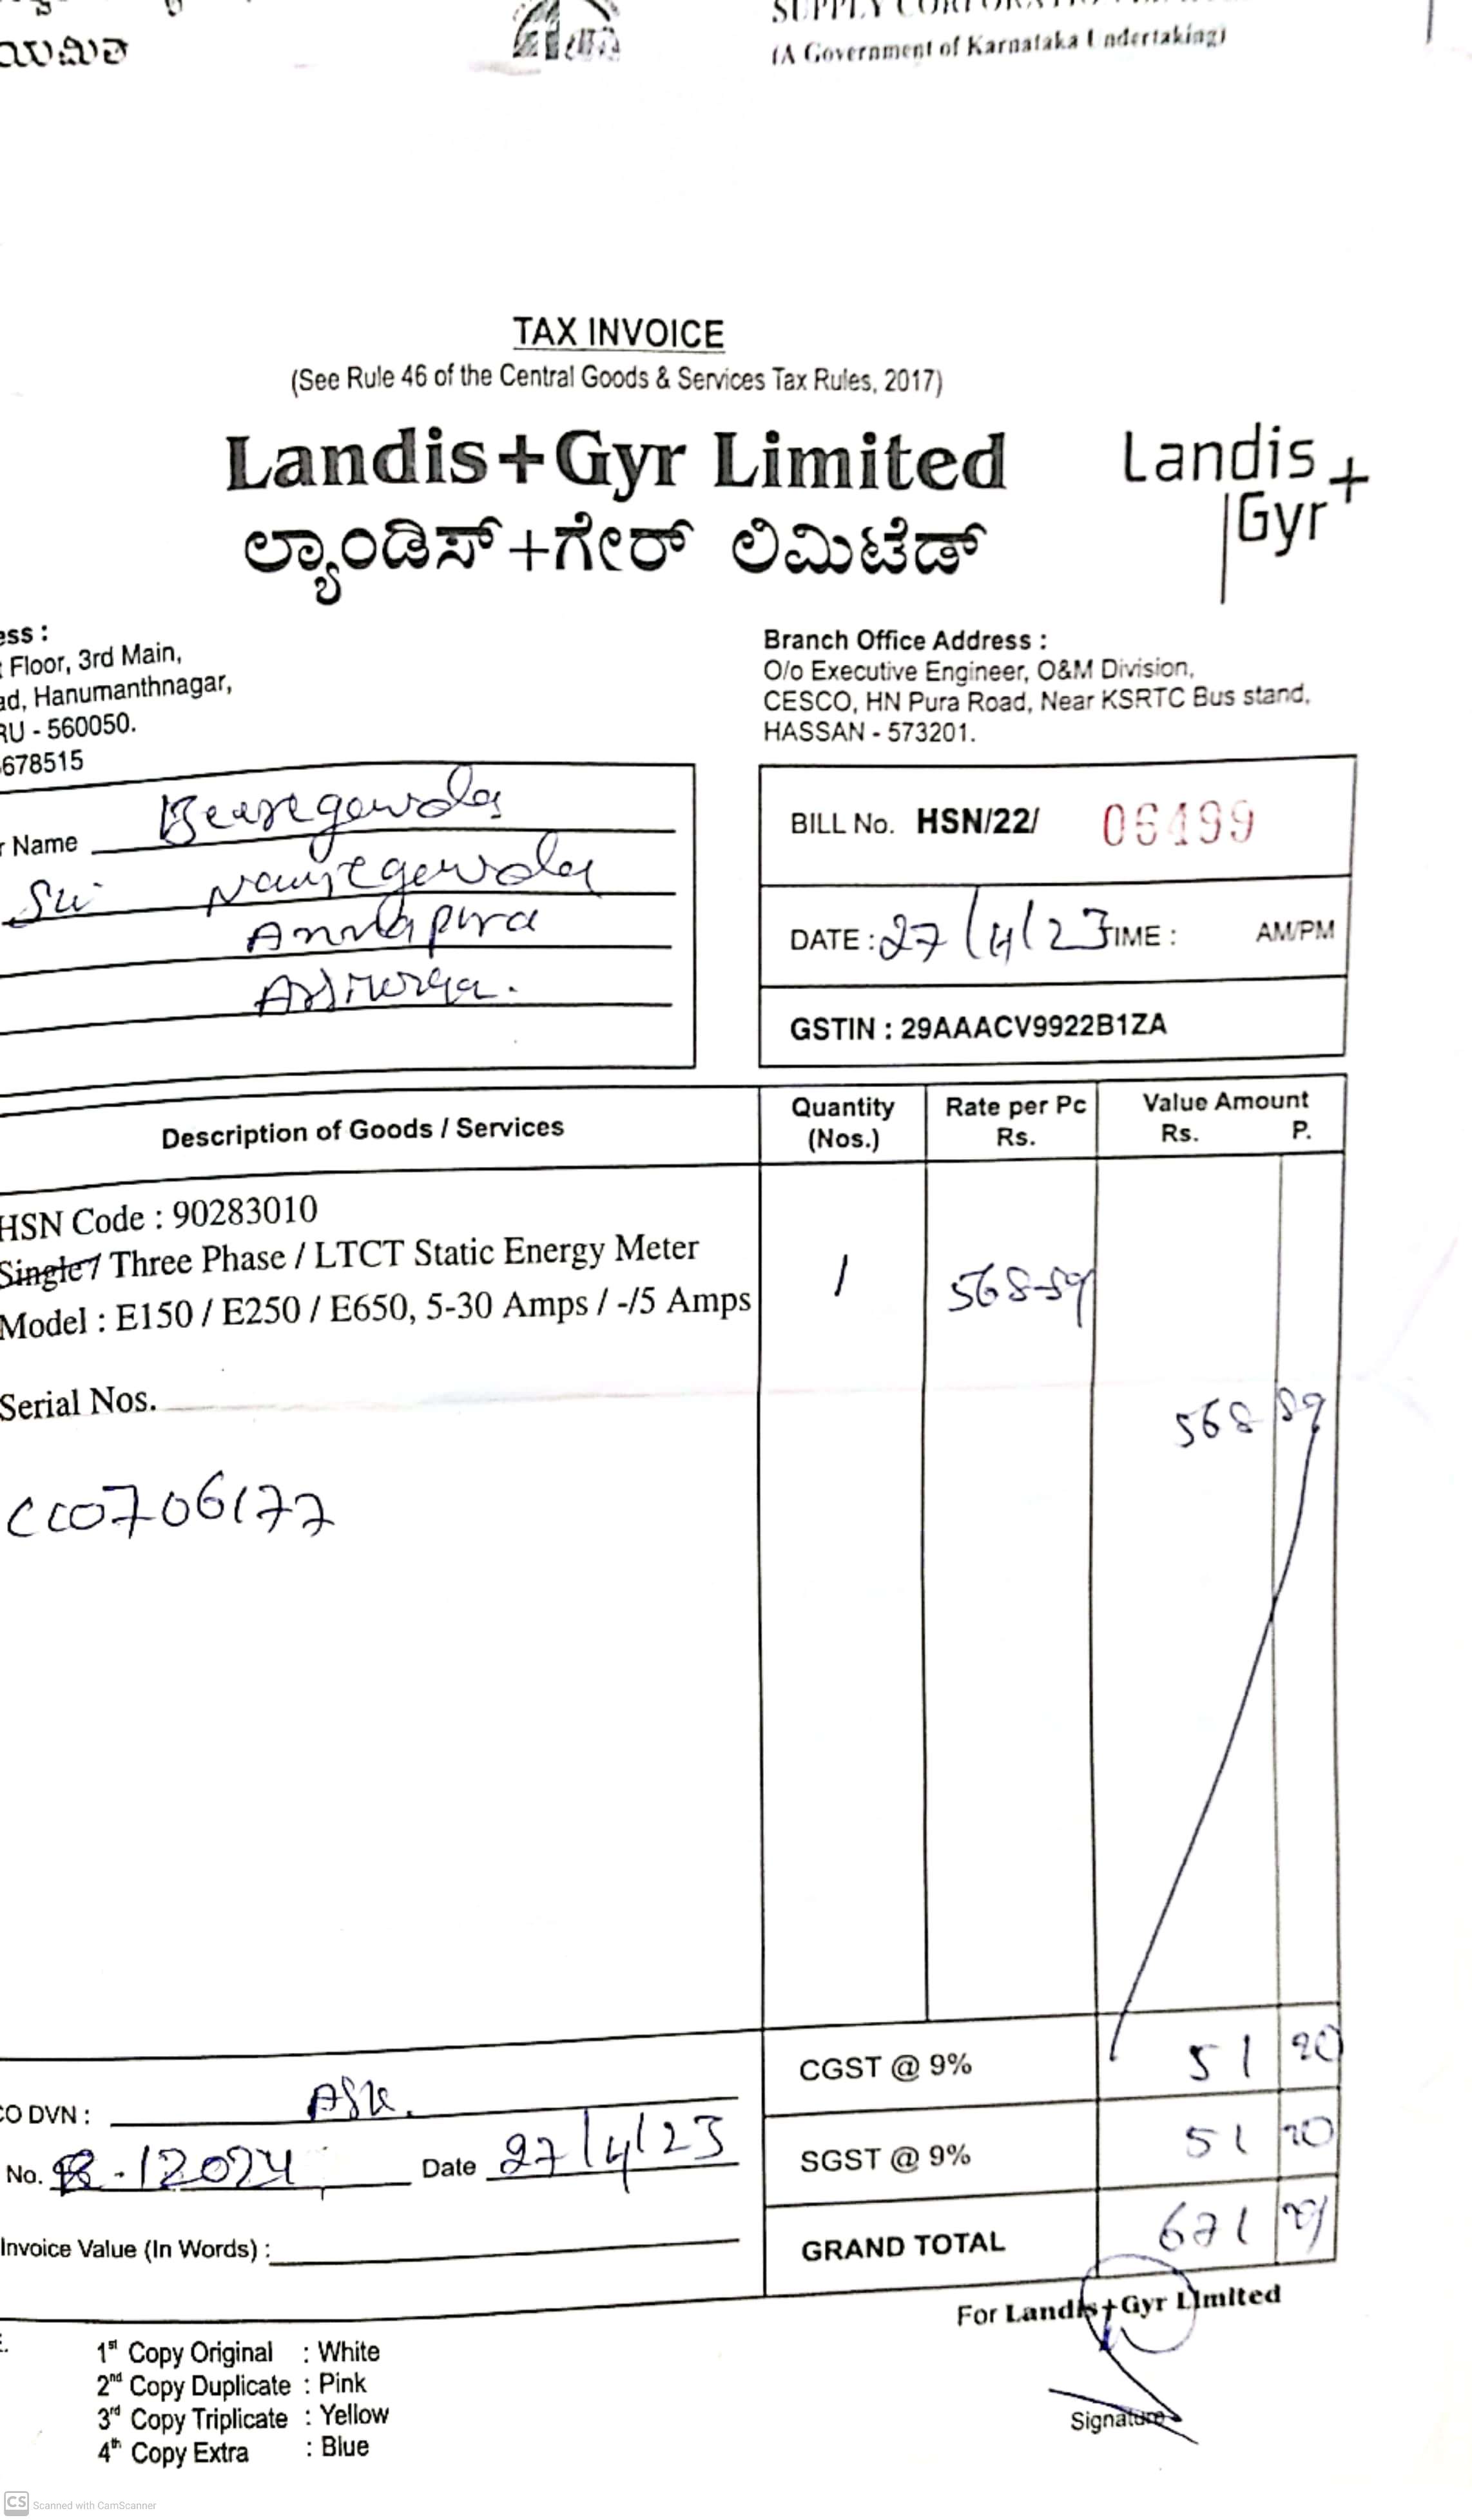 ಯಮಿತ
(A Government of Karnataka Undertaking)
TAX INVOICE
(See Rule 46 of the Central Goods & Services Tax Rules, 2017)
Landis+Gyr Limited
Landis+
Gyr
ಲ್ಯಾಂಡಿಸ್+ಗೇರ್ ಲಿಮಿಟೆಡ್
ess :
Floor, 3rd Main,
ad, Hanumanthnagar,
RU - 560050.
678515
Branch Office Address :
O/o Executive Engineer, O&M Division,
CESCO, HN Pura Road, Near KSRTC Bus stand,
HASSAN - 573201.
r Name
Annapura
BILL No. HSN/22/ 06499
DATE : 27/4/23 TIME : AM/PM
GSTIN : 29AAACV9922B1ZA
Description of Goods / Services
Quantity (Nos.)
Rate per Pc Rs.
Value Amount Rs. P.
HSN Code : 90283010
Single / Three Phase / LTCT Static Energy Meter
Model : E150 / E250 / E650, 5-30 Amps / -/5 Amps
1 568-89
Serial Nos.
568 89
0706177
CGST @ 9% 51 20
SGST @ 9% 51 20
GRAND TOTAL 671 29
CO DVN : ASK.
No. Date 27/4/23
Invoice Value (In Words) :
For Landis+Gyr Limited
1st Copy Original : White
2nd Copy Duplicate : Pink
3rd Copy Triplicate : Yellow
4th Copy Extra : Blue
Signature
CS Scanned with CamScanner